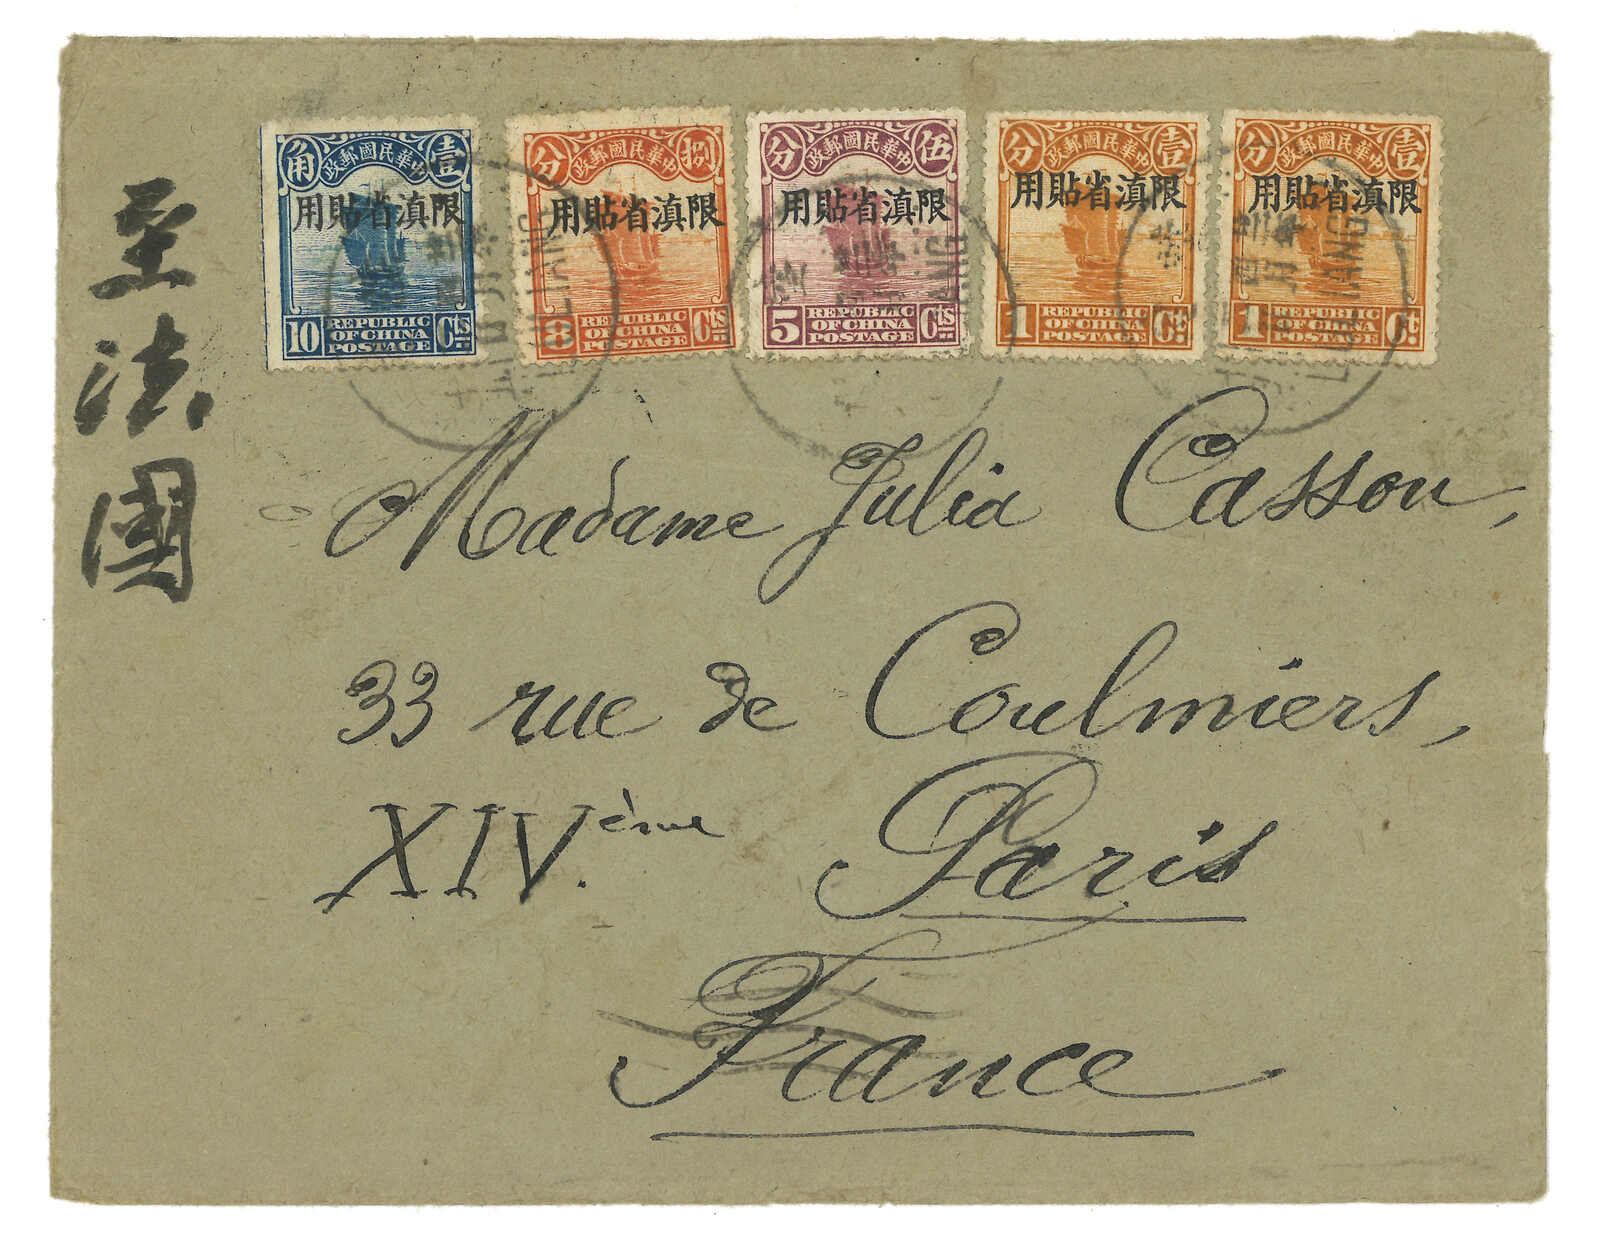 至法國
角 政郵國民華中 壹
用貼省滇限
10 REPUBLIC OF CHINA POSTAGE Cts
分 政郵國民華中 捌
用貼省滇限
8 REPUBLIC OF CHINA POSTAGE Cts
分 政郵國民華中 伍
用貼省滇限
5 REPUBLIC OF CHINA POSTAGE Cts
分 政郵國民華中 壹
用貼省滇限
1 REPUBLIC OF CHINA POSTAGE Ct.
分 政郵國民華中 壹
用貼省滇限
1 REPUBLIC OF CHINA POSTAGE Ct.
Madame Julia Casson,
33 rue de Coulmiers,
XIV.ème Paris
France